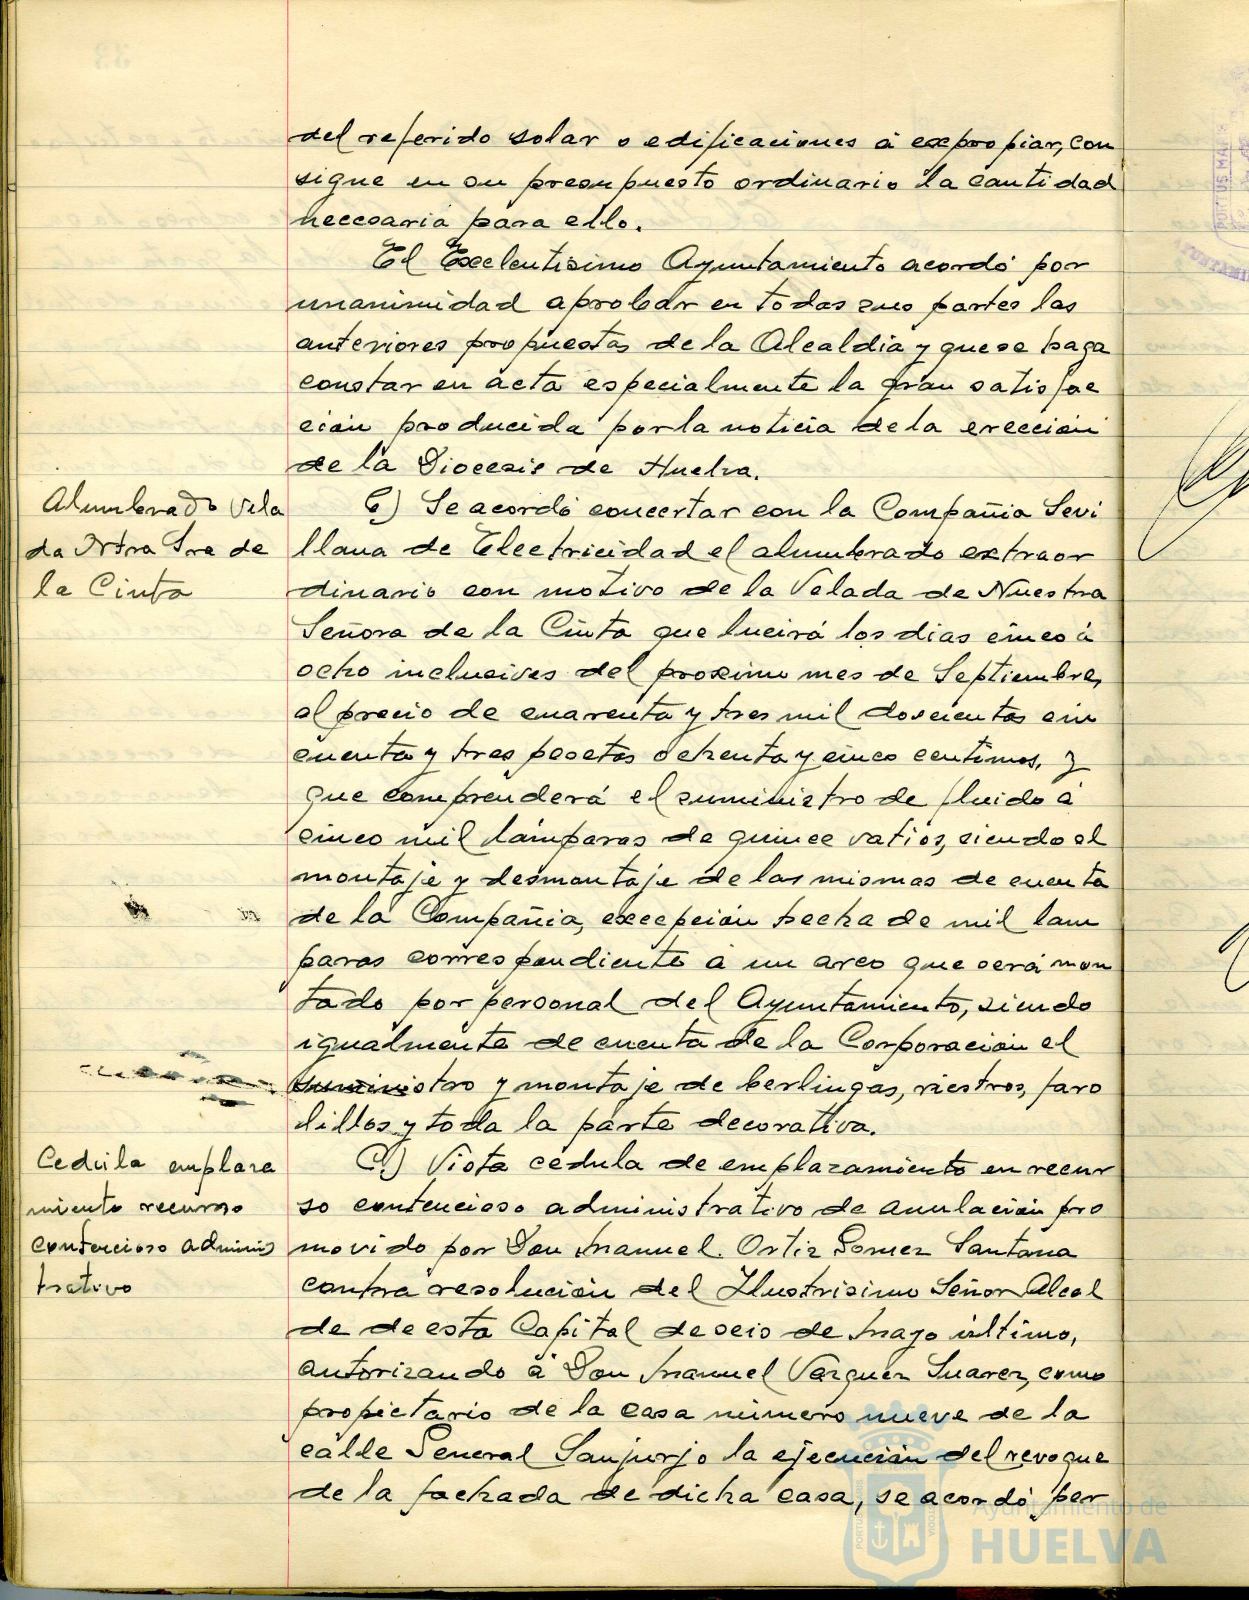 del referido solar o edificaciones á expropiar, con
signe en su presupuesto ordinario la cantidad
necesaria para ello.
El Excelentisimo Ayuntamiento acordó por
unanimidad aprobar en todas sus partes las
anteriores propuestas de la Alcaldia y que se haga
constar en acta especialmente la gran satisfac
ción producida por la noticia de la erección
de la Diocesis de Huelva.
Alumbrado Vela
da Ntra Sra de
la Cinta
Se acordó concertar con la Compañia Sevi
llana de Electricidad el alumbrado extraor
dinario con motivo de la Velada de Nuestra
Señora de la Cinta que lucirá los dias cinco á
ocho inclusives del proximo mes de Septiembre,
al precio de cuarenta y tres mil doscientas cin
cuenta y tres pesetas ochenta y cinco centimos, y
que comprenderá el suministro de fluido á
cinco mil lámparas de quince vatios, siendo el
montaje y desmontaje de las mismas de cuenta
de la Compañia, excepción hecha de mil lam
paras correspondiente á un arco que será mon
tado por personal del Ayuntamiento, siendo
igualmente de cuenta de la Corporación el
suministro y montaje de berlingas, riestros, faro
lillos y toda la parte decorativa.
Cedula emplaza
miento recurso
contencioso adminis
trativo
C) Vista cédula de emplazamiento en recur
so contencioso administrativo de anulación pro
movido por Don Manuel Ortiz Gomez Santana
contra resolución del Ilustrisimo Señor Alcal
de de esta Capital de seis de Mayo último,
autorizando á Don Manuel Vazquez Suarez, como
propietario de la casa número nueve de la
calle General Sanjurjo la ejecución del revoque
de la fachada de dicha casa, se acordó per
Ayuntamiento de
HUELVA